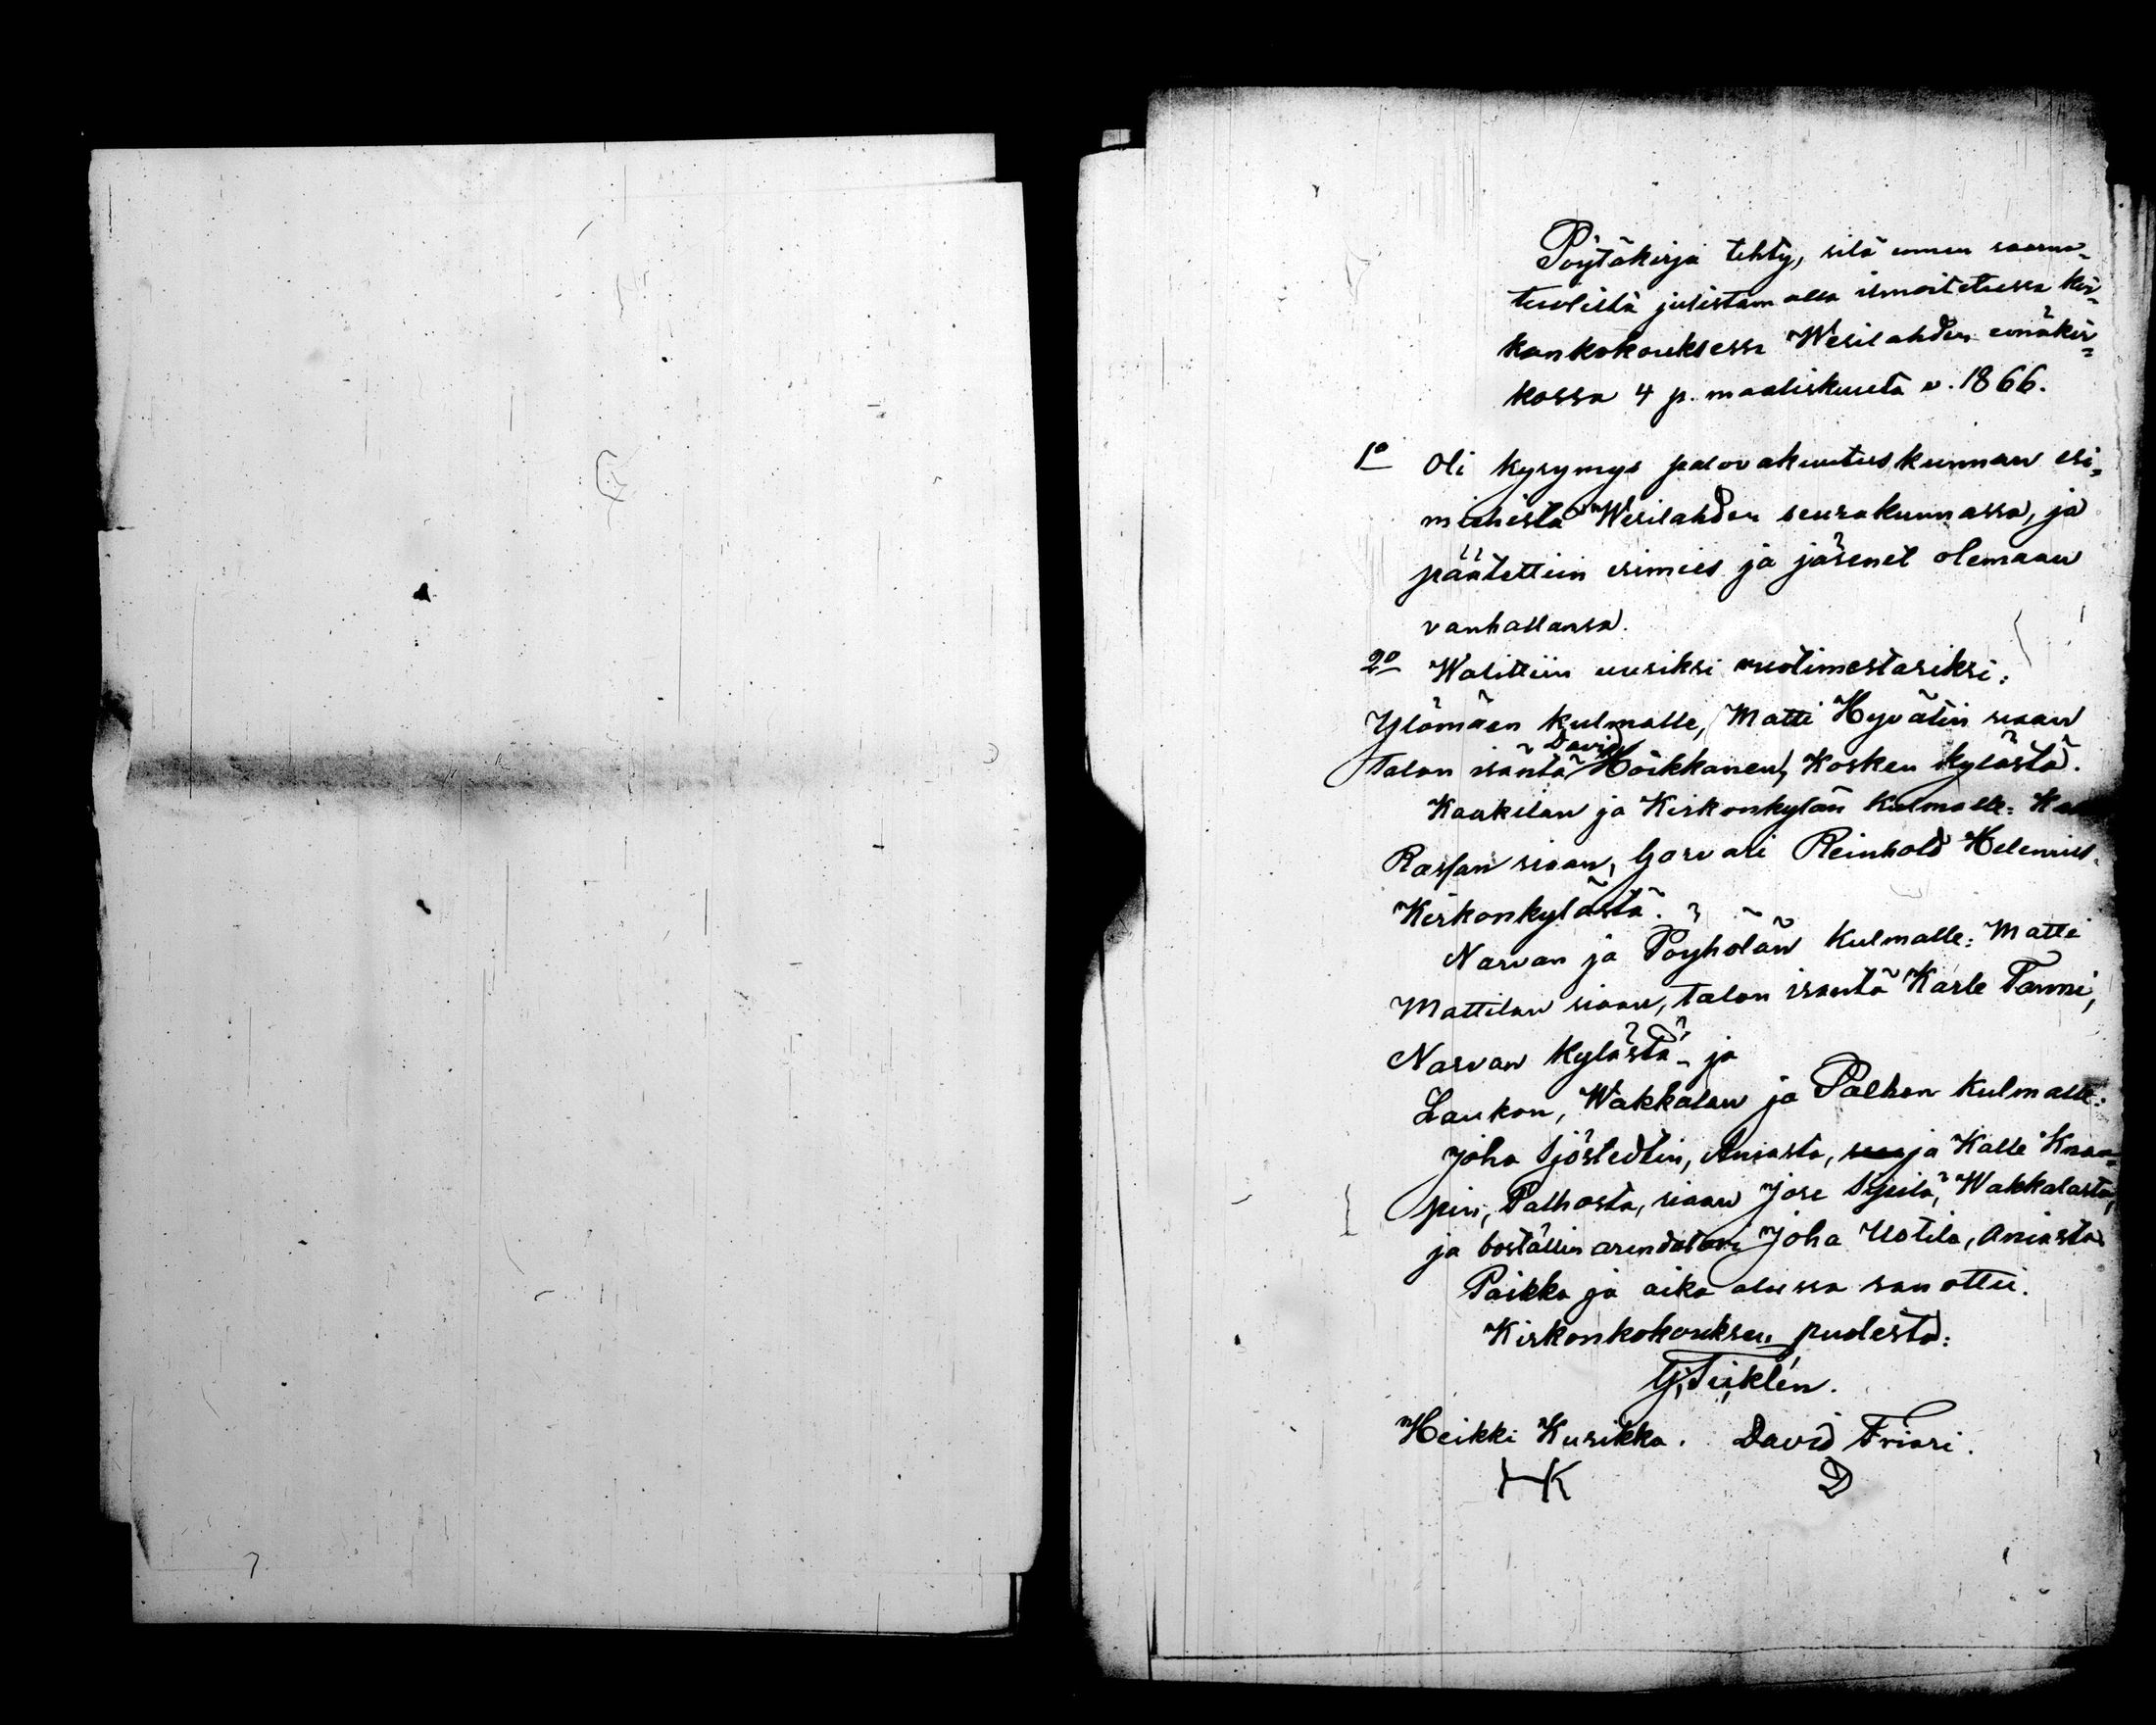 Pöytäkirja tehty, sitä ennen saarna-
tuolista julistamalla ilmoitetussa kir-
konkokouksessa Wesilahden emäkir-
kossa 4 p. maaliskuuta v. 1866.
1o Oli kysymys palovakuutuskunnan esi-
miehistä Wesilahden seurakunnassa, ja
päätettiin esimies ja jäsenet olemaan
vanhallansa.
2o Walittiin uusiksi ruotimestariksi:
Ylömäen kulmalle, Matti Hyvätin siaan
David
talon isäntä Höikkanen, Kosken kylästä.
Kaakilan ja Kirkonkylän kulmalle:
siaan, Garvari Reinhold
Kirkonkylästä.
Narvan ja Pöyhölän kulmalle: Matti
Mattilan siaan, talon isäntä Karle Tanni,
Narvan kylästä ja
Laukon, Wakkalan ja Palhon kulmalle:
Joha Sjöstedtin, Aniasta, ja Kalle Knaa-
pin, Palhosta, siaan Jose Sipilä, Wakkalasta,
ja boställin arendatori Joha Uotila, Aniasta
Paikka ja aika alussa sanottu.
Kirkonkokouksen puolesta:
Heikki Kusikka. David Friari.
HK D